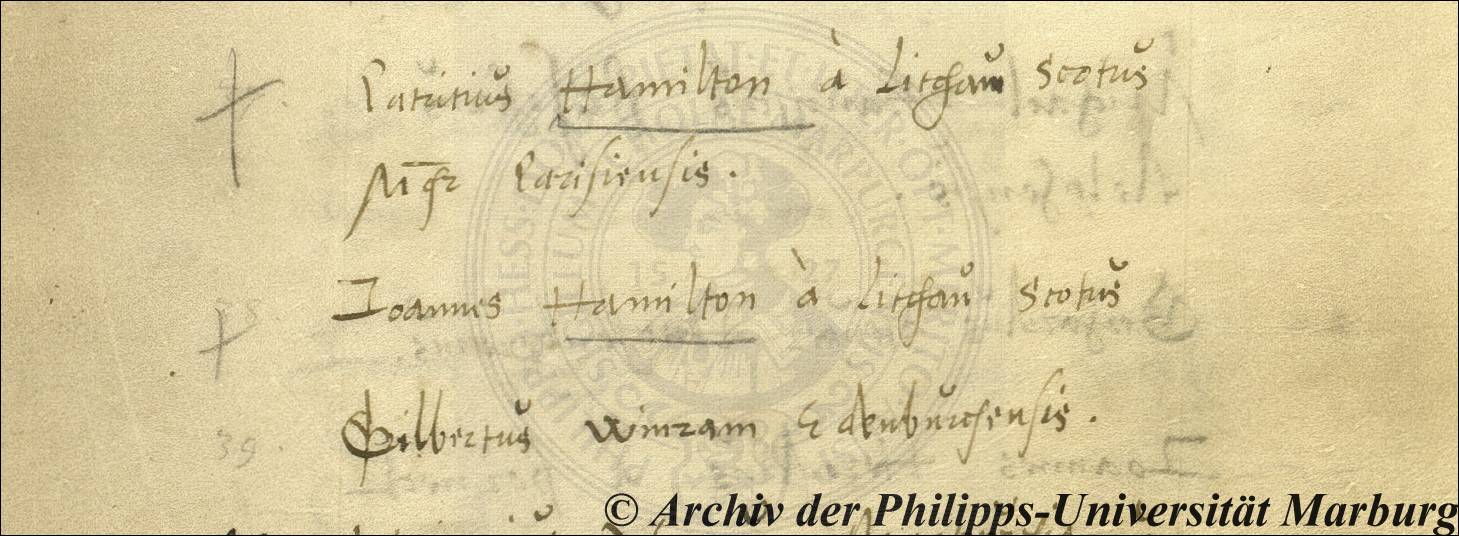 Patritius Hamilton à Litgaū Scotus
Mgr Parisiensis.
38. Ioannes Hamilton à Litgaū Scotus
39. Gilbertus winram Edenburgensis.
© Archiv der Philipps-Universität Marburg